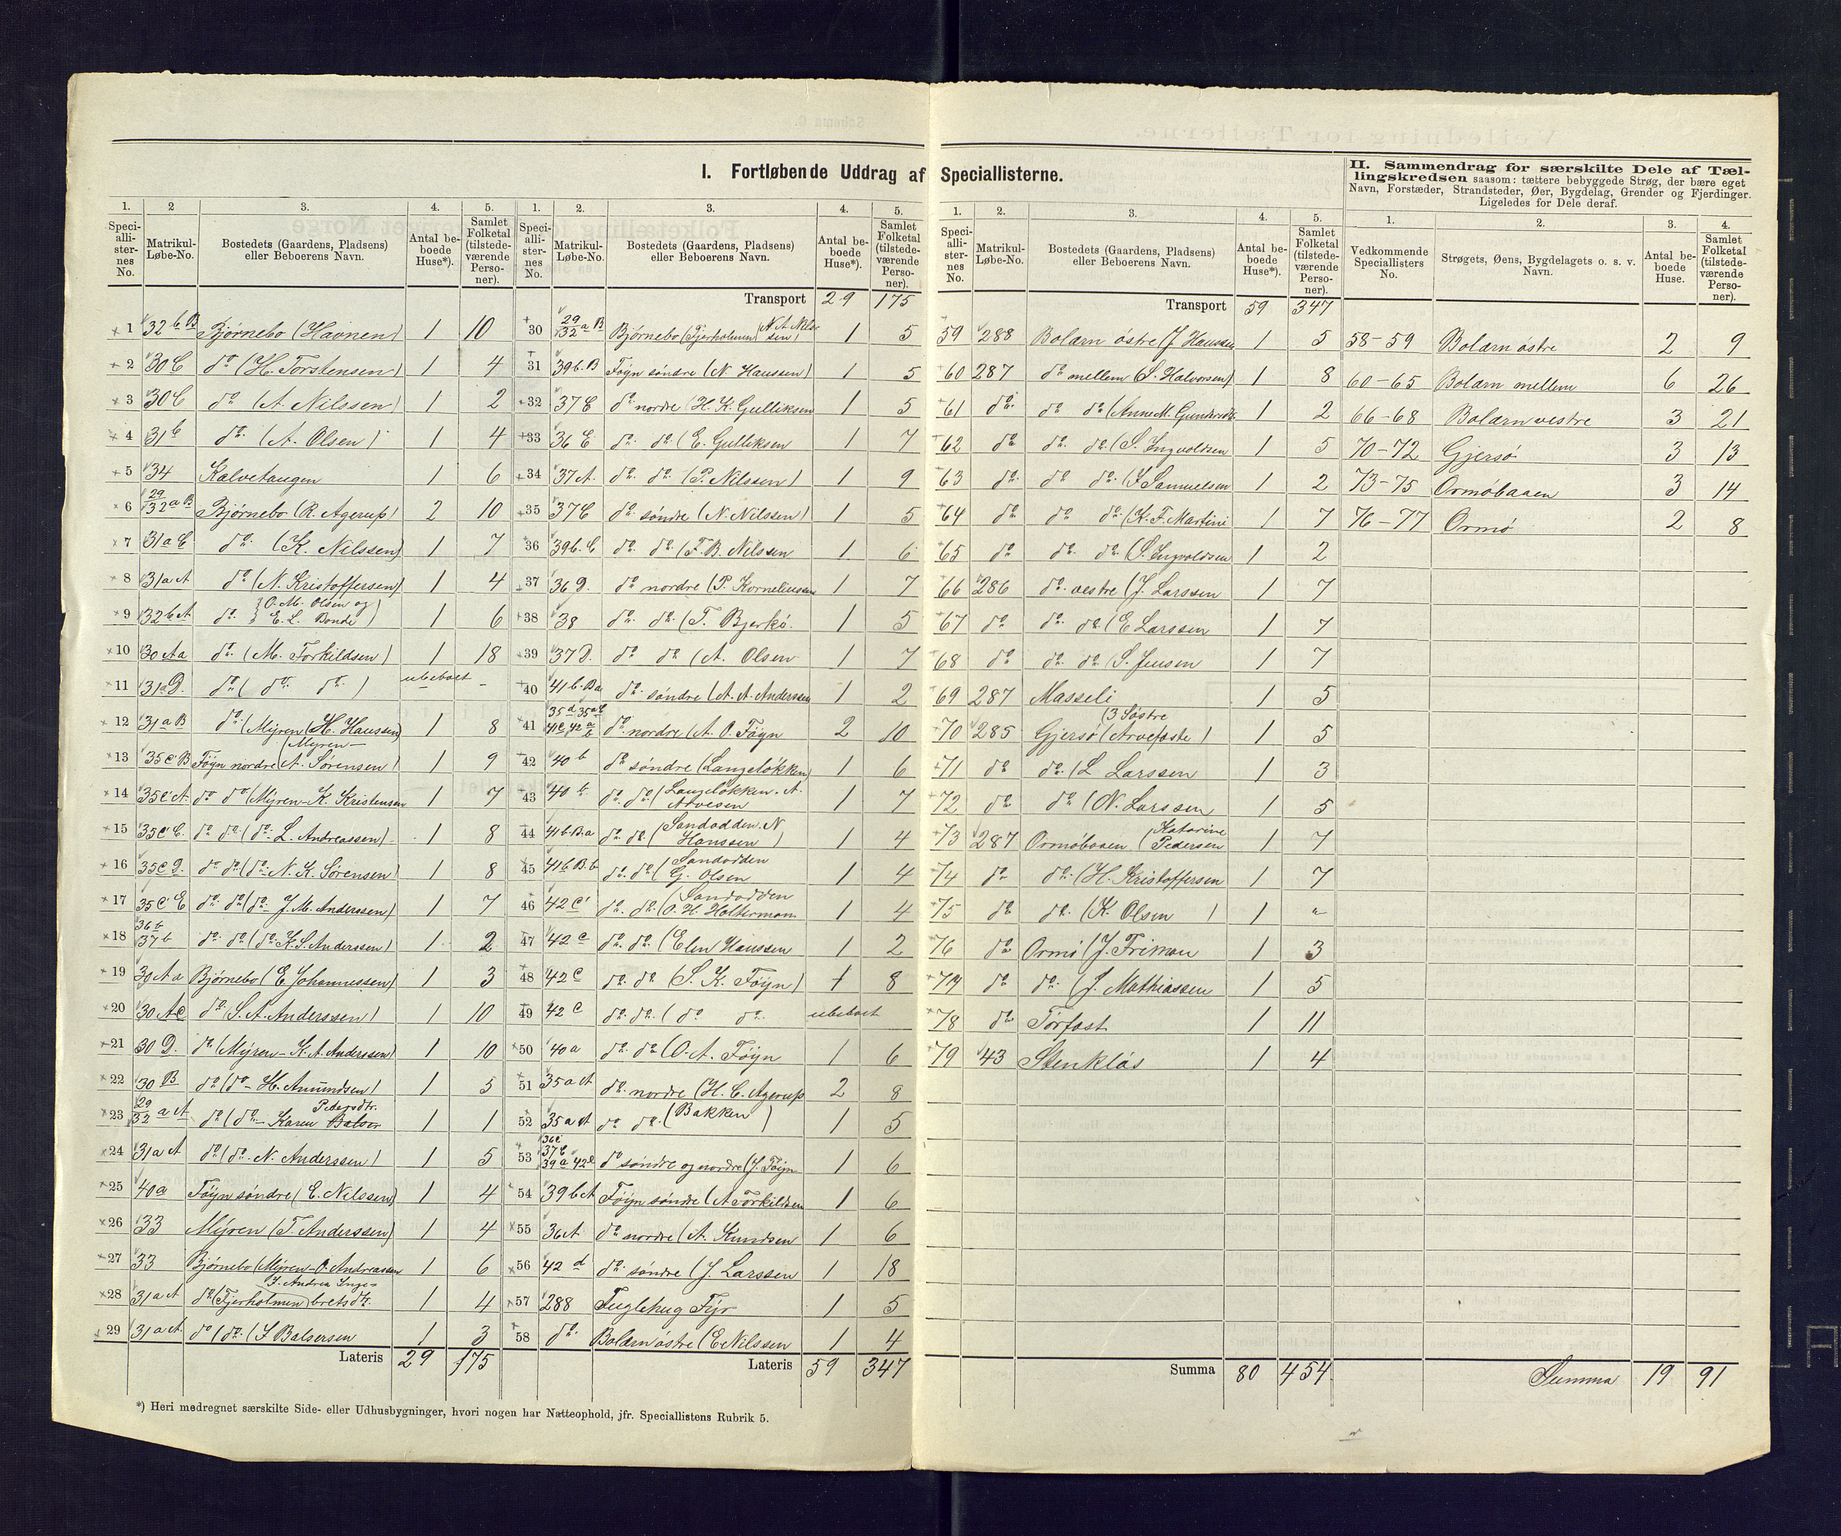 I. Fortløbende Uddrag af Speciallisterne.
1. Speciallisternes No. | 2 Matrikul-Løbe-No. | 3. Bostedets (Gaardens, Pladsens) eller Beboerens Navn. | 4. Antal beboede Huse*). | 5. Samlet Folketal (tilstedeværende Personer).
1 | 32 b B | Bjørnebo (Havnen) | 1 | 10
2 | 30 C | do (H. Torstensen) | 1 | 4
3 | 30 C | do (A. Nilssen) | 1 | 2
4 | 31 b | do. (A. Olsen) | 1 | 4
5 | 34 | Kalvetangen | 1 | 6
6 | 29/32 a B | Bjørnebo (R. Agerup) | 2 | 10
7 | 31 a C | do. (K. Nilssen) | 1 | 7
8 | 31 a A | do (N. Kristoffersen) | 1 | 4
9 | 32 b A | do. (O. M. Olsen og E. L. Bonde) | 1 | 6
10 | 30 A a | do. (M. Torkildsen) | 1 | 18
11 | 31 a D. | do. ( do. do. ) | ubeboet | -
12 | 31 a B | do. (Myren (H. Hanssen) | 1 | 8
13 | 35 c B | Føyn nordre (Myren- A. Sørensen) | 1 | 9
14 | 35 c A | do do (Myren-K. Kristensen | 1 | 7
15 | 35 c C. | do. do. (do. L. Andreassen) | 1 | 8
16 | 35 c D. | do. do. (do. N. K. Sørensen) | 1 | 8
17 | 35 c E | do. do. (do. J. M. Anderssen) | 1 | 7
18 | 36 b 37 b | do. do. (do. K. S. Anderssen) | 1 | 2
19 | 30 A a | Bjørnebo (E. Johannessen) | 1 | 3
20 | 30 A c | do. S. A. Anderssen) | 1 | 10
21 | 30 D. | do (Myren-K. A. Anderssen) | 1 | 10
22 | 30 B | do (do - H. Amundsen) | 1 | 5
23 | 29/32 a A | do (do. - Karen Pedersdtr. | 1 | 1
24 | 31 a A | do (do. N. Anderssen) | 1 | 5
25 | 40 a | Føyn søndre (E. Nilssen) | 1 | 4
26 | 33 | Myren (T. Anderssen) | 1 | 4
27 | 33 | Bjørnebo (Myren-O. Andreassen | 1 | 6
28 | 31 a A | do (Fjerholmen) Andrea Ingebretsdtr. | 1 | 4
29 | 31 a A | do (do. (J. Balsersen | 1 | 3
Lateris 29 175
1. Speciallisternes No. | 2. Matrikul-Løbe-No. | 3. Bostedets (Gaardens, Pladsens) eller Beboerens Navn. | 4. Antal beboede Huse*). | 5. Samlet Folketal (tilstedeværende Personer).
Transport 29 175
30 | 29/32 a B | Bjørnebo (Fjerholmen) (N. A. Nilssen) | 1 | 5
31 | 39 b. B | Føyn søndre (N. Hanssen) | 1 | 5
32 | 37 C | do. nordre (H. K. Gulliksen | 1 | 5
33 | 36 C | do. do. (E. Gulliksen | 1 | 7
34 | 37 A. | do. do. (P. Nilssen) | 1 | 9
35 | 37 C | do. søndre (N. Nilssen) | 1 | 5
36 | 39 b. C | do. do. (F. B. Nilssen | 1 | 6
37 | 36 D. | do. nordre (P. Korneliussen | 1 | 7
38 | 38 | do. do. (T. Bjerkø. | 1 | 5
39 | 37 D. | do. do (A. Olsen | 1 | 7
40 | 41 b. B a | do. søndre (A. A. Anderssen | 1 | 2
41 | 35 d 35 a C 41 c 42 a | do. nordre (A. O. Føyn | 2 | 10
42 | 40 b | do søndre (Langeløkken) | 1 | 6
43 | 40 b | do. do. (Langeløkken. A. Arvesen | 1 | 7
44 | 41 b. B a | do. do. (Sandodden. N Hanssen) | 1 | 4
45 | 41 b. B. b | do. do. (Sandodden G. Olsen | 1 | 4
46 | 42 c | do. do. (Sandodden O. H. Holterman | 1 | 4
47 | 42 c | do. do. (Elen Hanssen | 1 | 2
48 | 42 c | do. do (S. K. Føyn) | 1 | 8
49 | 42 c | do. do. (do do. | ubeboet
50 | 40 a | do. do (O. A. Føyn | 1 | 6
51 | 35 a A | do. nordre (H. C. Agerup | 2 | 8
52 | 35 a A | do do. (Bakken) | 1 | 5
53 | 36 c 37 C 39 a 42 e | do søndre og nordre (J. Føyn | 1 | 6
54 | 39 b A | Føyn søndre (A Torkildsen | 1 | 6
55 | 36 A | do. nordre (A. Knudsen | 1 | 6
56 | 42 d | do. søndre (J. Larssen | 1 | 18
57 | 288 | Fuglehug Fyr | 1 | 5
58 | do. | Bolærn østre (E. Nilssen | 1 | 4
Lateris 59 347
1. Speciallisternes No. | 2. Matrikul-Løbe-No. | 3. Bostedets (Gaardens, Pladsens) eller Beboerens Navn. | 4. Antal beboede Huse*). | 5. Samlet Folketal (tilstedeværende Personer).
Transport 59 347
59 | 288 | Bolærn østre (J. Hanssen | 1 | 5
60 | 287 | do mellem (S. Halvorsen) | 1 | 8
61 | do. | do do (Anne M. Gundersdtr | 1 | 2
62 | do | do. do. (S. Ingvoldsen | 1 | 5
63 | do | do do. (J Samuelsen | 1 | 2
64 | do | do do. (K. F. Martini | 1 | 7
65 | do | do. do. (S. Ingvoldsen | 1 | 2
66 | 286 | do. vestre (J. Larssen | 1 | 7
67 | do | do. do. (E. Larssen | 1 | 7
68 | do. | do. do (S. Jensen | 1 | 7
69 | 287 | Masseli | 1 | 5
70 | 285 | Gjersø (3 Søstre (Arvefaste) | 1 | 5
71 | do | do. (L Larssen | 1 | 3
72 | do | do (N. Larssen | 1 | 5
73 | 287 | Ormøbaaen (Katarine Pedersen | 1 | 7
74 | do. | do. (H. Kristoffersen | 1 | 7
75 | do | do. (K. Olsen ) | 1 | "
76 | do | Ormø (J. Friman | 1 | 3
77 | do | do. (J. Mathiassen | 1 | 5
78 | do | Torfast | 1 | 11
79 | 43 | Stenkløs | 1 | 4
Summa 80 454
II. Sammendrag for særskilte Dele af Tællingskredsen saasom: tættere bebyggede Strøg, der bære eget Navn, Forstæder, Strandsteder, Øer, Bygdelag, Grender og Fjerdinger. Ligeledes for Dele deraf.
1. Vedkommende Speciallisters No. | 2. Strøgets, Øens, Bygdelagets o. s. v. Navn. | 3. Antal beboede Huse. | 4. Samlet Folketal (tilstedeværende Personer).
58-59 | Bolærn østre | 2 | 9
60-65 | Bolærn mellem | 6 | 26
66-68 | Bolærn vestre | 3 | 21
70-72 | Gjersø | 3 | 13
73-75 | Ormøbaaen | 3 | 14
76-77 | Ormø | 2 | 8
Summa 19 91
*) Heri medregnet særskilte Side- eller Udhusbygninger, hvori nogen har Natteophold, jfr. Speciallistens Rubrik 5.